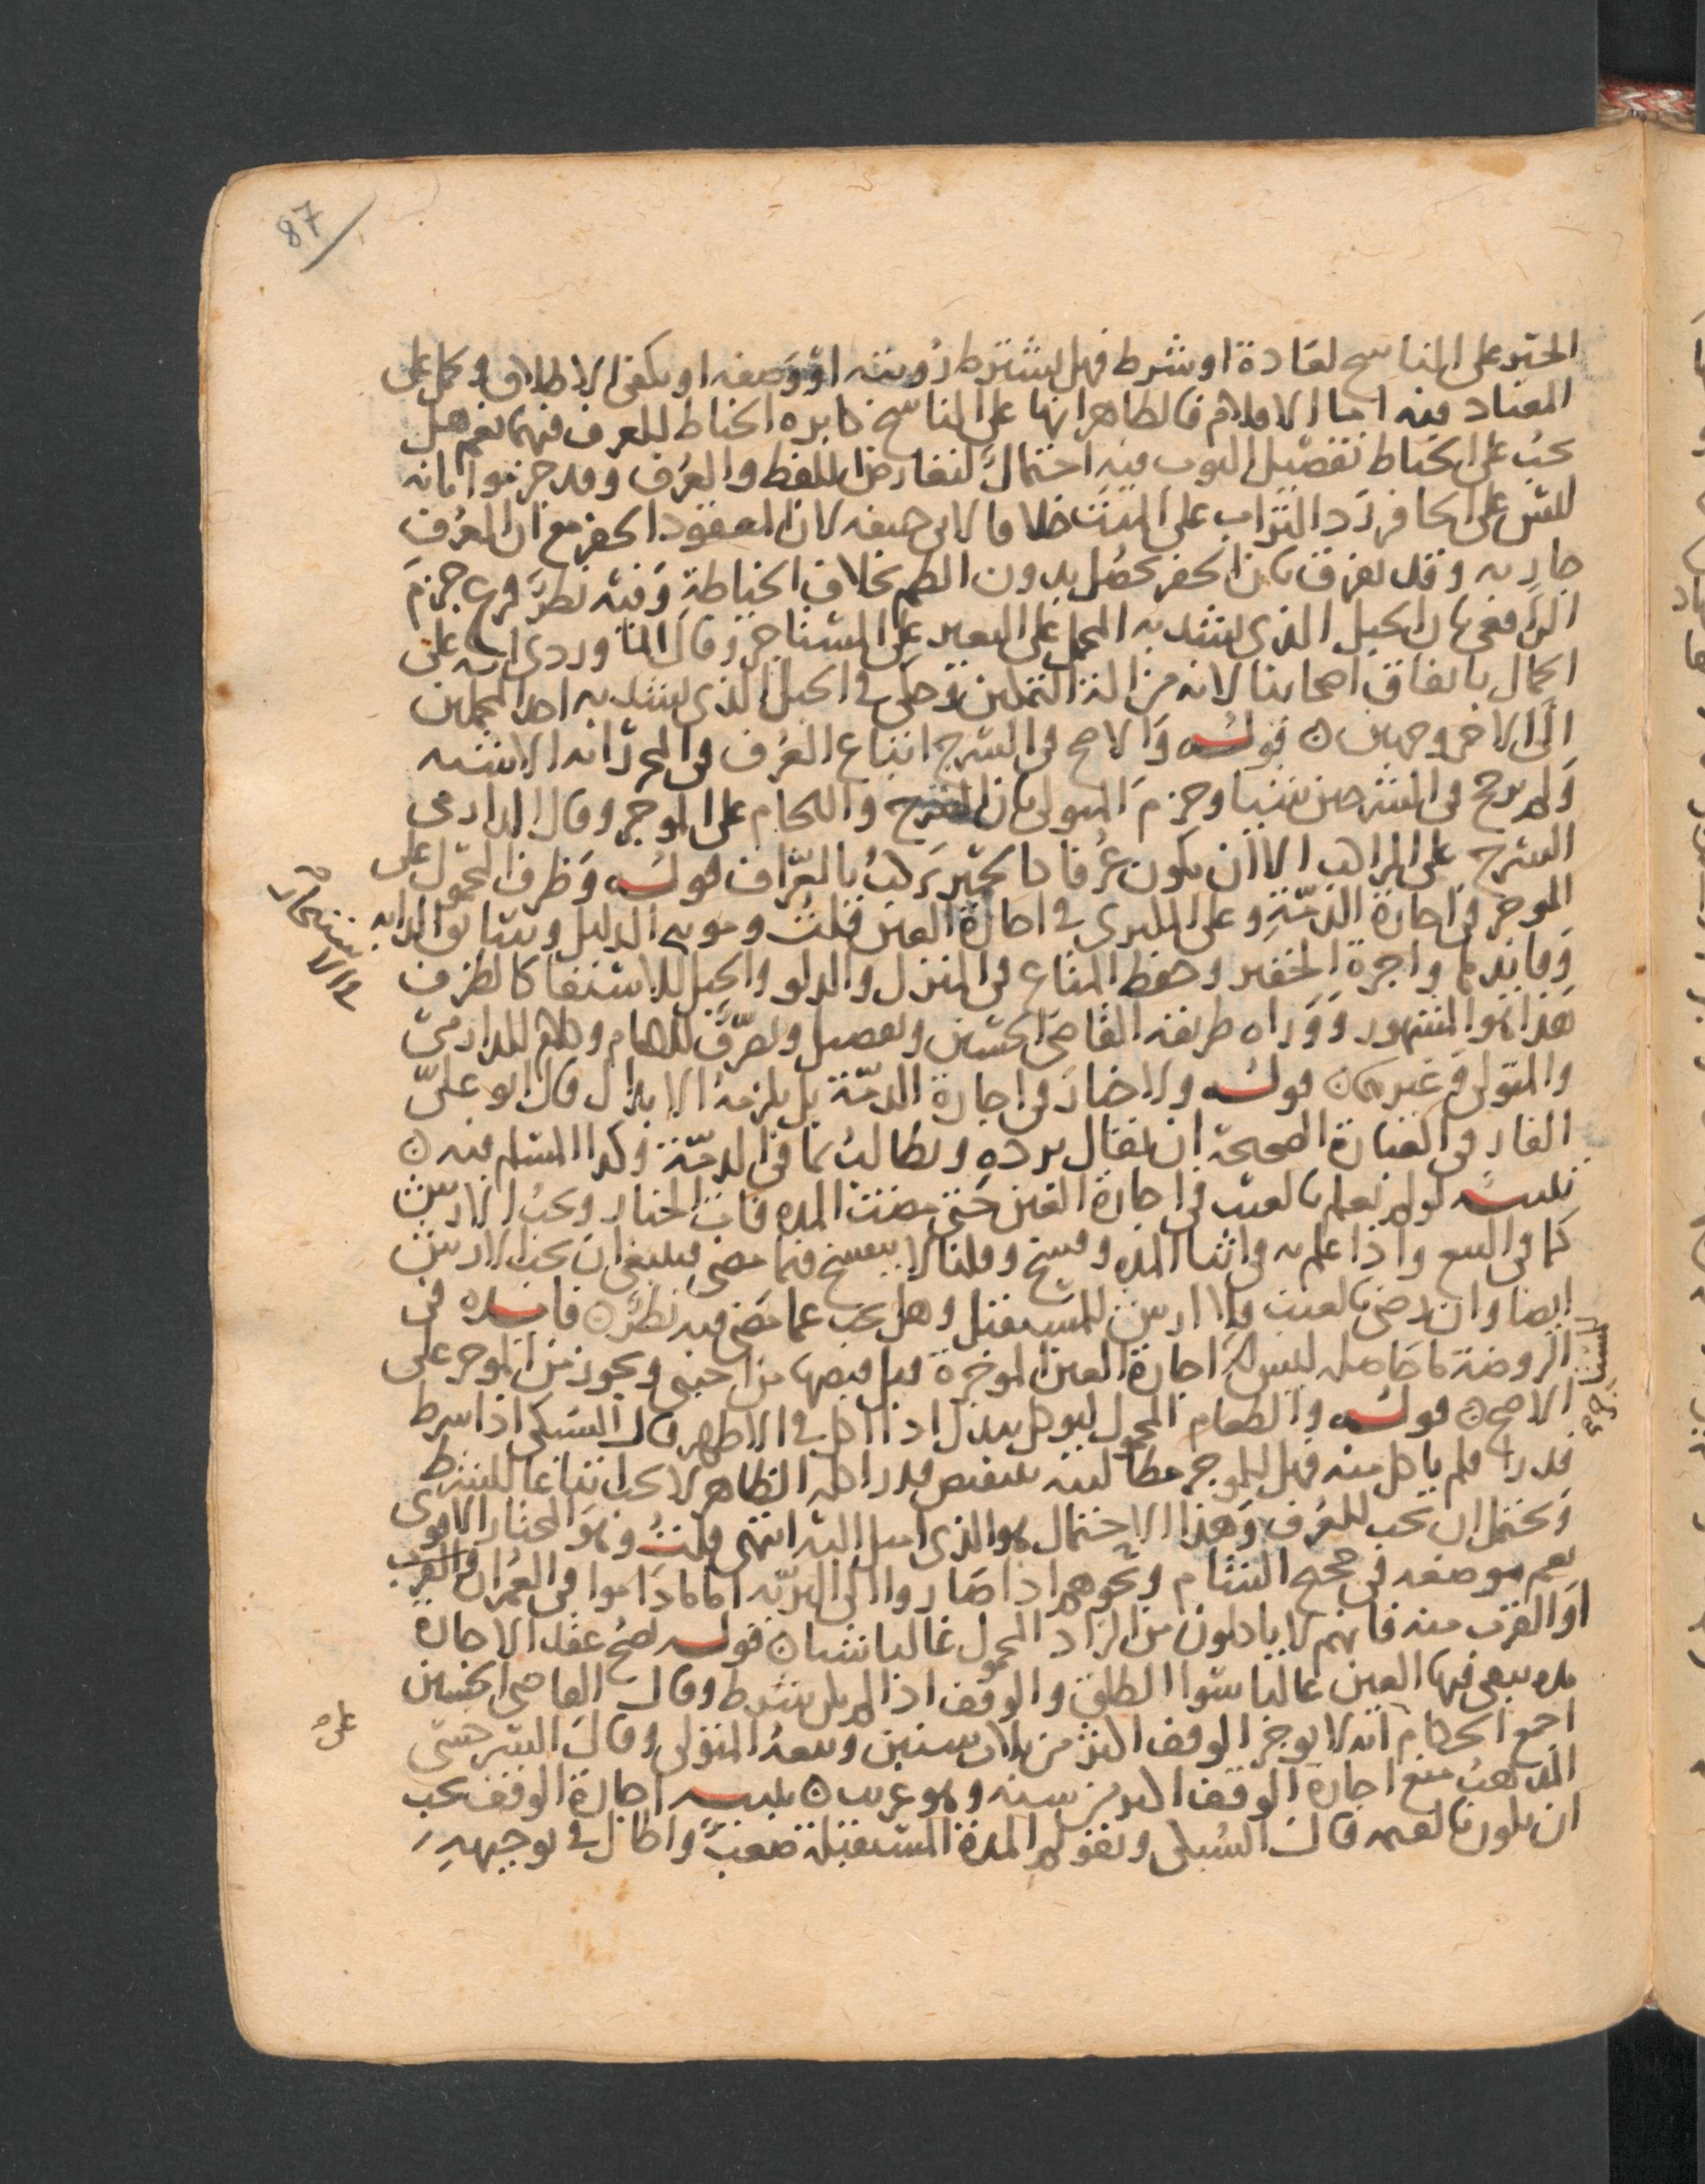 87
الحبر على الناسخ لعادة او شرط فهل يشترط رويته او وصفه او يكفي الاطلاق ويحمل على
المعتاد فيه اما الاقلام فالظاهر انها على الناسخ كابرة الخياط للعرف فيهما نعم هل
يجب على الخياط تفصيل الثوب فيه احتمال لتعارض اللفظ والعرف وقد جزموا بانه
ليس على الحافر رد التراب على الميت خلافا لابي حنيفه لان المعقود الحفر مع ان العرف
جار به وقد يفرق بان الحفر يحصل بدون الطم بخلاف الخياطة وفيه نظر فرع جزم
الرافعي بان الحبل الذي يشد به المحمل على البعير على المستاجر وقال الماوردي انه على
الجمال باتفاق اصحابنا لانه من الة التمكين وحكى في الحبل الذي يشد به احد المحملين
الى الاخر وجهين ۞ قوله والاصح في السرج اتباع العرف في المحرر انه الاشبه
ولم يرجح في الشرحين شيا وجزم المتولي بان السرج واللجام على الموجر وقال الدارمي
السرج على الراكب الا ان يكون عرفا كالحمير يركب بالعراف قوله وظرف المحمول على
الموجر في اجارة الذمة وعلى المكتري في اجارة العين قلت ومونه الدليل وسائق الدابه
وقائدها واجرة الخفير وحفظ المتاع في المنزل والدلو والحبل للاستقا كالظرف
هذا هو المشهور ووراه طريقه القاضي الحسين وتفصيل وتصرف للامام وكلام للدارمي
والمتولي وغيرهما ۞ قوله ولا خيار في اجارة الذمة بل يلزمه الابدال قال ابو علي
الفارقي العبارة الصحيحة ان يقال يرده ويطالب بما في الذمة وكذا المسلم فيه ۞
تنبيه لو لم يعلم بالعيب في اجارة العين حتى مضت المده فات الخيار ويجب الارش
كما في البيع واذا علم به في اثنا المده وفسخ وقلنا لا ينفسخ فيما مضى فينبغي ان يجب الارش
ايضا وان رضي بالعيب فلا ارش للمستقبل وهل يجب عما مضى فيه نظر ۞ فايده في
الروضة ما حاصله ليس له اجارة العين الموجرة قبل قبضها من اجنبي ويجوز من الموجر على
الاصح ۞ قوله والطعام المحمول ليوكل يبدل اذا اكل في الاظهر قال السبكي اذا شرط
قدرا فلم ياكل منه فهل للموجر مطالبته بتنقيص قدر اكله الظاهر لا يجب اتباعا للشرط
ويحتمل ان يجب للعرف وهذا الاحتمال هو الذي اميل اليه انتهى قلت وهو المختار الاقوى
نعم موضعه في حجج الشام ونحوهم اذا صاروا الى البرية اما ما داموا في العمران
او القرب منه فانهم لا ياكلون من الزاد المحمول غالبا شيا ۞ قوله يصح عقد الاجارة
مده يبقى فيها العين غالبا سوا الطلق والوقف اذا لم يكن شرط وقال القاضي الحسين
اجمع الحكام انه لا يوجر الوقف اكثر من ثلاث سنين وتبعه المتولي وقال السرخسي
المذهب منع اجارة الوقف اكثر من سنه وهو غريب ۞ تنبيه اجارة الوقف يجب
ان يكون بالقيمه قال السبكي وتقويم المدة المستقبلة صعب واطال في توجيهه
والاستيجار
للمستاجر
على